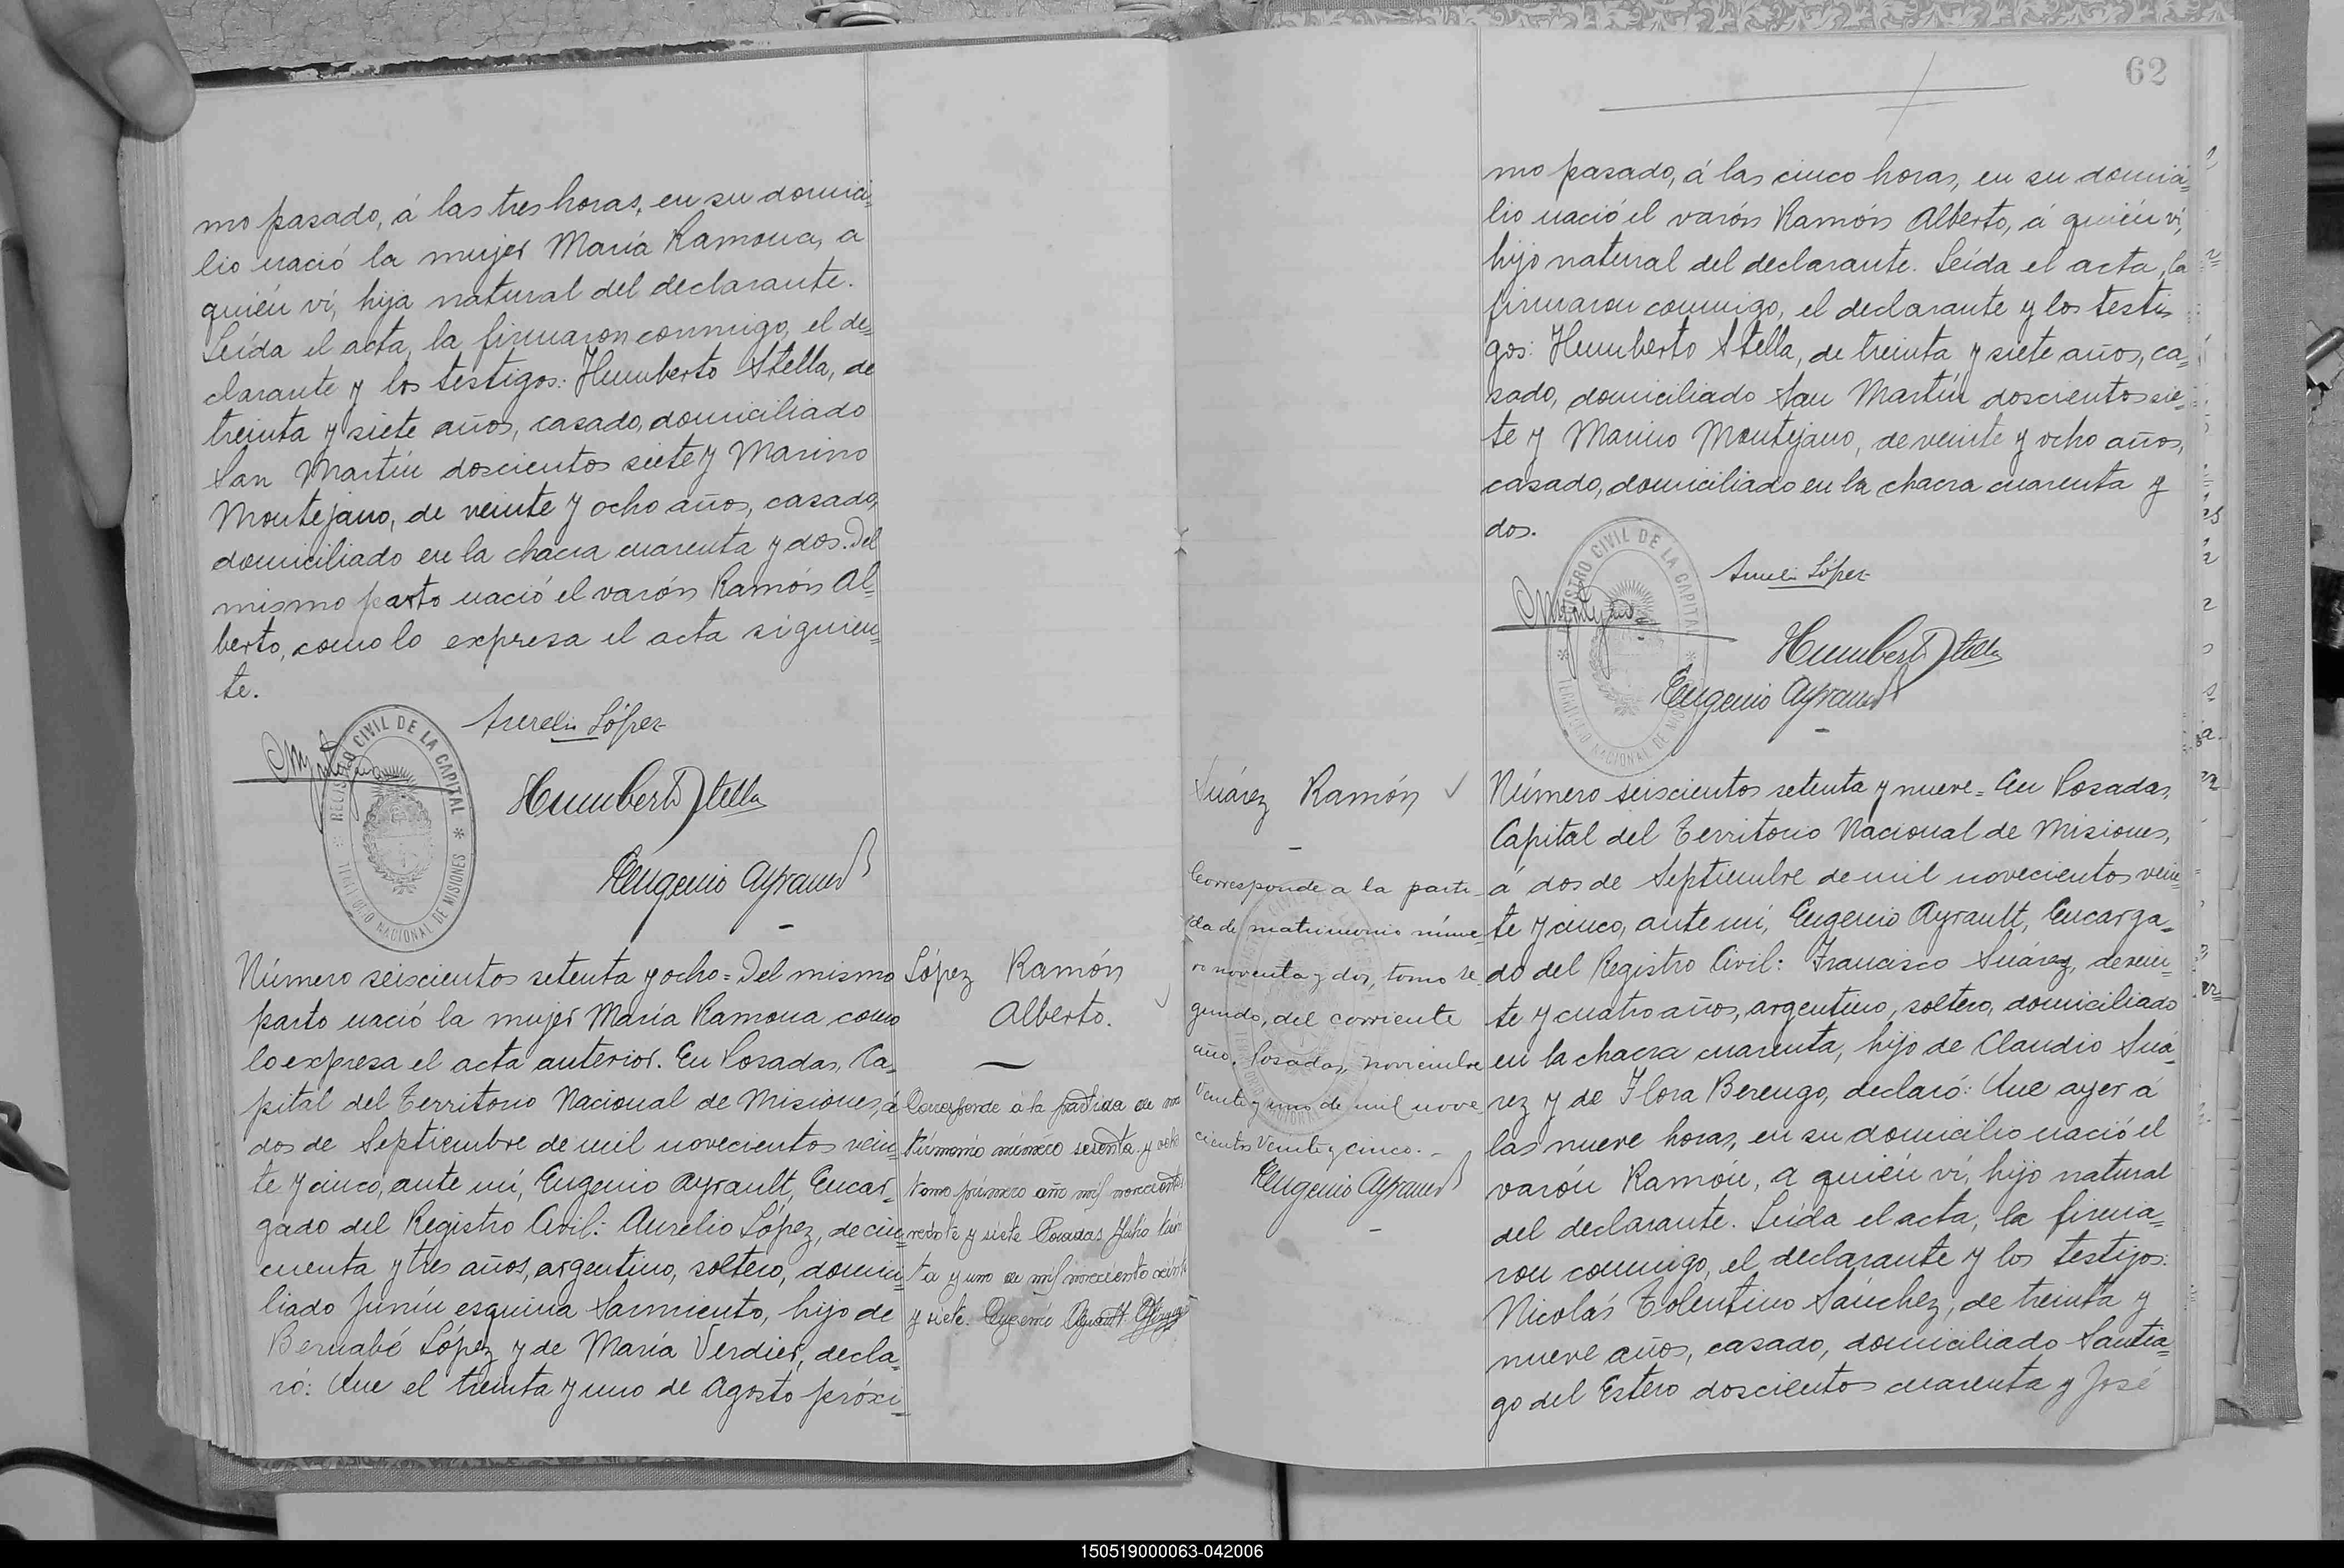 mo pasado, á las tres horas, en su domici=
lio nació la mujer María Ramona, a
quién ví, hija natural del declarante.
Leída el acta, la firmaron conmigo, el de=
clarante y los testigos: Humberto Stella, de
treinta y siete años, casado, domiciliado
San Martín doscientos siete y Marino
Montejano, de veinte y ocho años, casado,
domiciliado en la chacra cuarenta y dos. Del
mismo parto nació el varón Ramón Al=
berto, como lo expresa el acta siguien=
te.
Aurelio López
REGISTRO CIVIL DE LA CAPITAL
TERRITORIO NACIONAL DE MISIONES
Humberto Stella
Eugenio Ayrault
Número seiscientos setenta y ocho = Del mismo
parto nació la mujer María Ramona como
lo expresa el acta anterior. En Posadas, Ca=
pital del Territorio Nacional de Misiones, á
dos de Septiembre de mil novecientos vein=
te y cinco, ante mí, Eugenio Ayrault, Encar=
gado del Registro Civil: Aurelio López, de cin=
cuenta y tres años, argentino, soltero, domici=
liado Junín esquina Sarmiento, hijo de
Bernabé López y de María Verdier, decla=
ró: Que el treinta y uno de Agosto próxi=
López Ramón
Alberto.
Corresponde á la partida de ma
trimonio número sesenta y ocho
tomo primero año mil novecientos
veinte y siete Posadas Julio trein
ta y uno de mil novecientos veinte
y siete. Eugenio Ayrault
62
mo pasado, á las cinco horas, en su domici=
lio nació el varón Ramón Alberto, á quién ví,
hijo natural del declarante. Leída el acta, la
firmaron conmigo, el declarante y los testi=
gos: Humberto Stella, de treinta y siete años, ca=
sado, domiciliado San Martín doscientos sie=
te y Marino Montejano, de veinte y ocho años,
casado, domiciliado en la chacra cuarenta y
dos.
REGISTRO CIVIL DE LA CAPITAL
TERRITORIO NACIONAL DE MISIONES
Aurelio López
Humberto Stella
Eugenio Ayrault
Suárez Ramón
Corresponde a la parti
da de matrimonio núme
ro noventa y dos, tomo se
gundo, del corriente
año. Posadas, noviembre
veinte y uno de mil nove
cientos veinte y cinco.
Eugenio Ayrault
Número seiscientos setenta y nueve = En Posadas,
Capital del Territorio Nacional de Misiones,
á dos de Septiembre de mil novecientos vein=
te y cinco, ante mí, Eugenio Ayrault, Encarga=
do del Registro Civil: Francisco Suárez, de vein=
te y cuatro años, argentino, soltero, domiciliado
en la chacra cuarenta, hijo de Claudio Suá=
rez y de Flora Berengo, declaró: Que ayer á
las nueve horas, en su domicilio nació el
varón Ramón, a quién ví, hijo natural
del declarante. Leída el acta, la firma=
ron conmigo, el declarante y los testigos:
Nicolás Tolentino Sánchez, de treinta y
nueve años, casado, domiciliado Santia=
go del Estero doscientos cuarenta y José
150519000063-042006